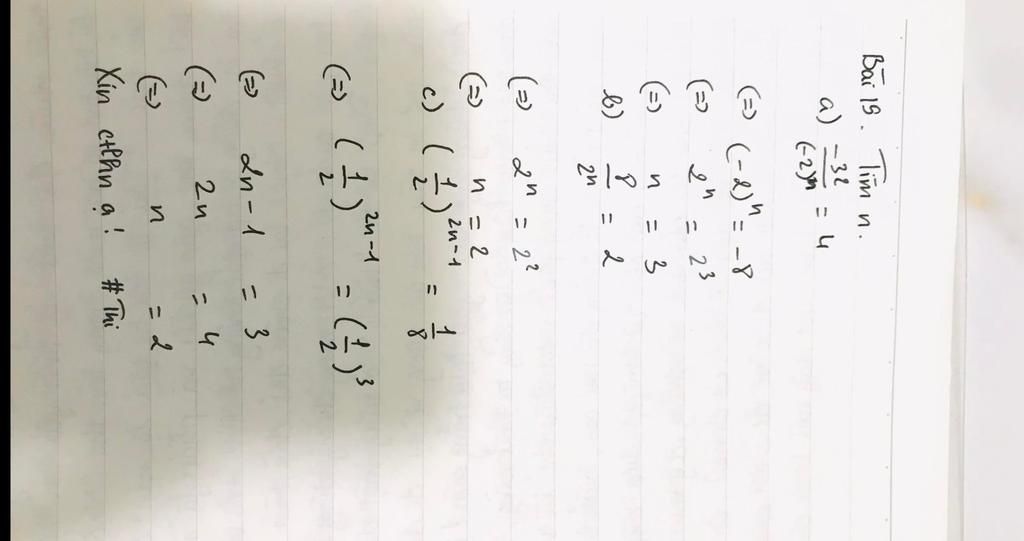 Bài 19. Tìm n.
a) \frac{-32}{(-2)^n} = 4
(=) (-2)^n = -8
(=) 2^n = 2^3
(=) n = 3
b) \frac{8}{2^n} = 2
(=) 2^n = 2^2
(=) n = 2
c) (\frac{1}{2})^{2n-1} = \frac{1}{8}
(=) (\frac{1}{2})^{2n-1} = (\frac{1}{2})^3
(=) 2n - 1 = 3
(=) 2n = 4
(=) n = 2
Xin ctlhn ạ! #Thi